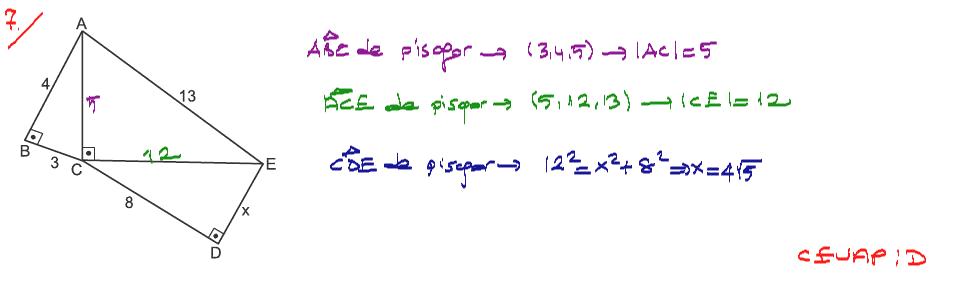 7.
A
4
5
13
B
3
C
12
E
8
x
D
ABC de pisagor → (3,4,5) → |AC|=5
ACE de pisagor → (5,12,13) → |CE|=12
CDE de pisagor → 12²=x²+8² ⇒ x=4√5
CEVAP:D